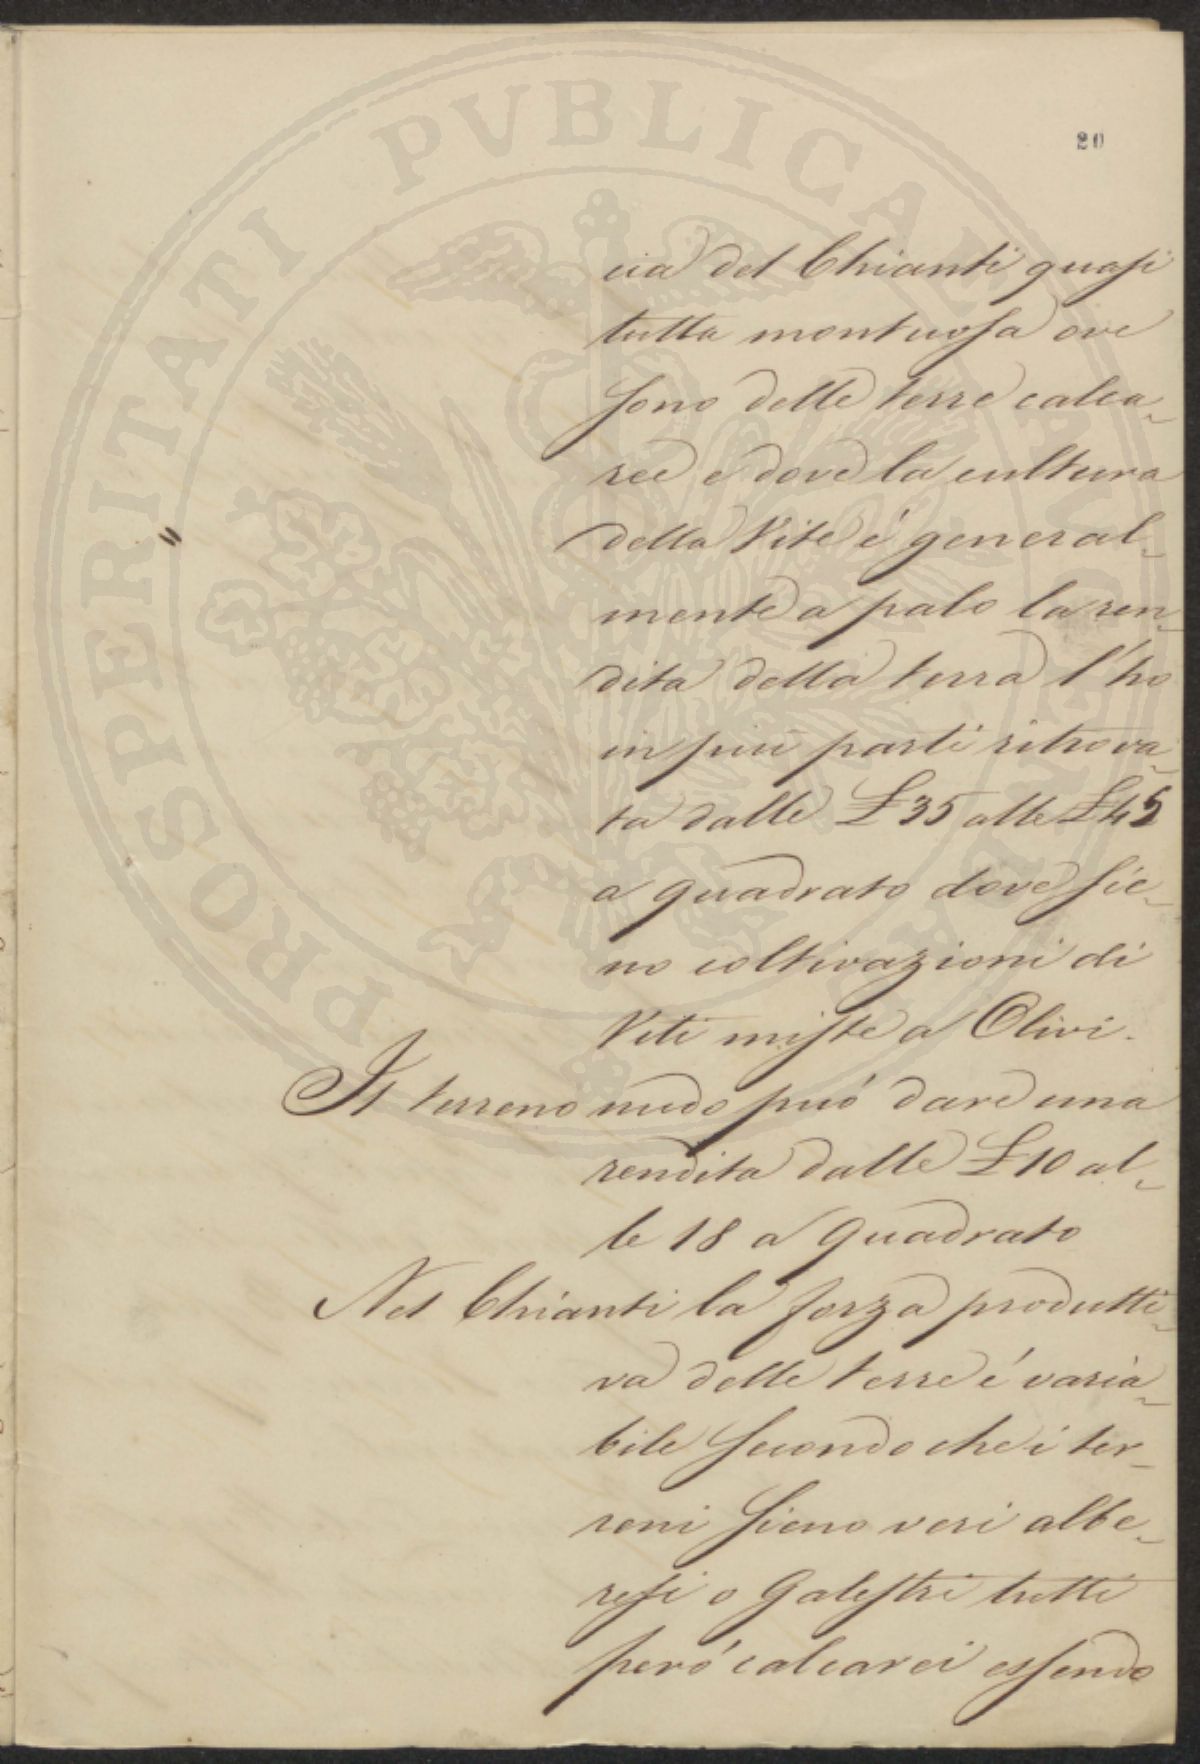 PROSPERITATI PVBLICAE AVGENDAE
20
cia del Chianti quasi
tutta montuosa ove
sono delle terre calca-
ree e dove la cultura
della Vite é general-
mente a palo la ren-
dita della terra l'ho
in piu parti ritrova-
ta dalle £ 35 alle £ 45
a quadrato dove sie-
no coltivazioni di
Viti miste a Olivi.
Il terreno nudo può dare una
rendita dalle £ 10 al-
le 18 a quadrato
Nel Chianti la forza produtti-
va delle terre é varia-
bile secondo che i ter-
reni sieno veri albe-
resi o Galestri tutti
però calcarei essendo